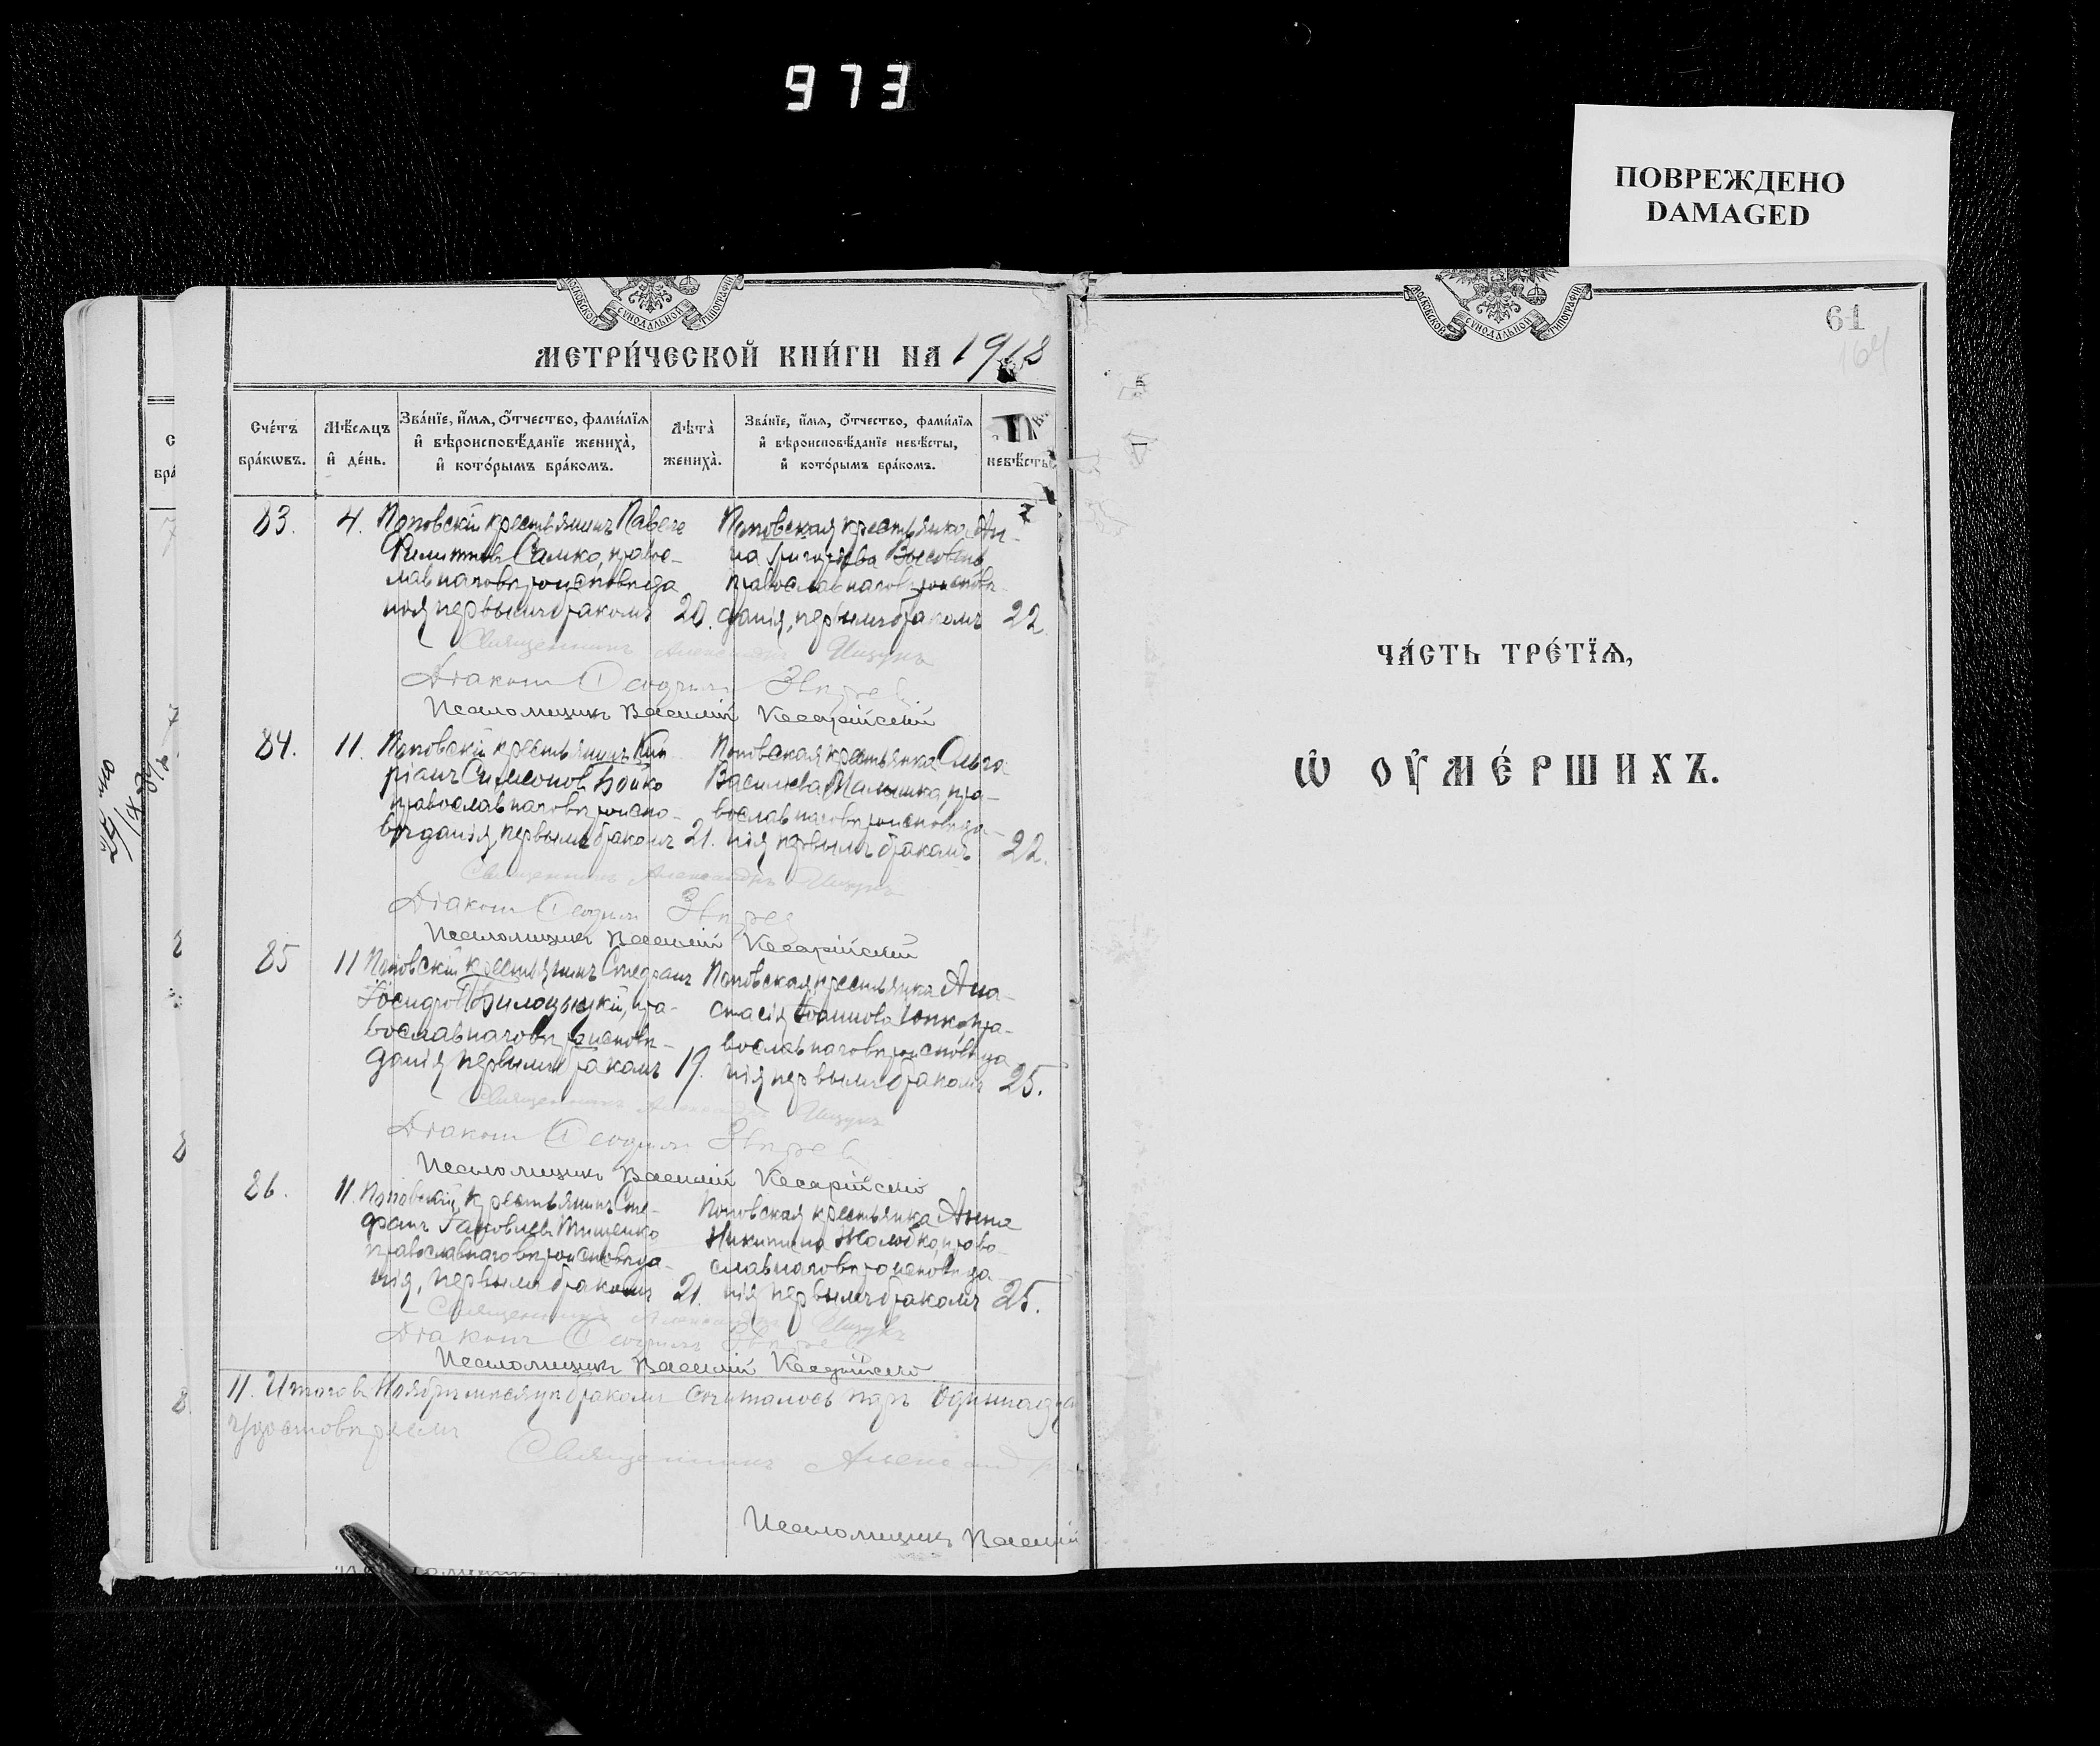 973
ПОВРЕЖДЕНО
DAMAGED
МОСКОВСКОЙ СѴНОДАЛЬНОЙ ТИПОГРАФІИ
МЕТРИ́ЧЕСКОЙ КНИ́ГИ НА 1918
Сче́тъ бра́кωвъ.
Мѣ́сяцъ и҆ де́нь.
Зва́нїе, и҆́мѧ, ѻ҆́тчество, фами́лїѧ и҆ вѣроисповѣ́данїе жениха̀, и҆ кото́рымъ бра́комъ.
Лѣта̀ жениха̀.
Зва́нїе, и҆́мѧ, ѻ҆́тчество, фами́лїѧ и҆ вѣроисповѣ́данїе невѣ́сты, и҆ кото́рымъ бра́комъ.
невѣ́сты
83. 4. Поповскій крестьянинъ Павелъ
Филиппов Самко, право-
славнаго вѣроисповѣда
нія первымъ бракомъ 20.
Поповская крестьянка Ан-
на Григорьева
православнаго вѣроисповѣ-
данія, первымъ бракомъ 22.
Священникъ Александръ
Діаконъ
Псаломщикъ Василій Кесарійскій
84. 11. Поповскій крестьянинъ Кип
ріанъ Симеонов Бойко
православнаго вѣроиспо-
вѣданія, первымъ бракомъ 21.
Поповская крестьянка Ольга
Васильева Малышка, пра-
вославнаго вѣроисповѣда-
нія первымъ бракомъ 22.
Священникъ Александръ
Діаконъ
Псаломщикъ Василій Кесарійскій
85 11 Поповскій крестьянинъ Стефанъ
Іосифов Билоцький, пра-
вославнаго вѣроисповѣ-
данія первымъ бракомъ 19.
Поповская крестьянка Ана-
стасія Іоаннова пра-
вославнаго вѣроисповѣда
нія первымъ бракомъ 25.
Священникъ Александръ
Діаконъ
Псаломщикъ Василій Кесарійскій
86. 11. Поповскій крестьянинъ Сте-
фанъ Іаковлевъ Тищенко
православнаго вѣроисповѣда-
нія, первымъ бракомъ 21.
Поповская крестьянка Анна
Никитина право-
славнаго вѣроисповѣда-
нія первымъ бракомъ 25.
Священникъ Александръ
Діаконъ
Псаломщикъ Василій Кесарійскій
11. Итого въ Ноябрѣ мѣсяцѣ бракомъ сочиталось паръ одиннадца
удостовѣряемъ
Священникъ Александръ
Псаломщикъ Василій
МОСКОВСКОЙ СѴНОДАЛЬНОЙ ТИПОГРАФІИ
61
164
ЧА́СТЬ ТРЕ́ТЇѦ,
Ѽ ОУМЕ́РШИХЪ.